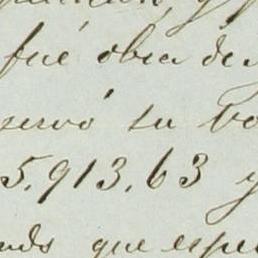 fué obra de
servó su bo
5.913,63 y
ands que espe